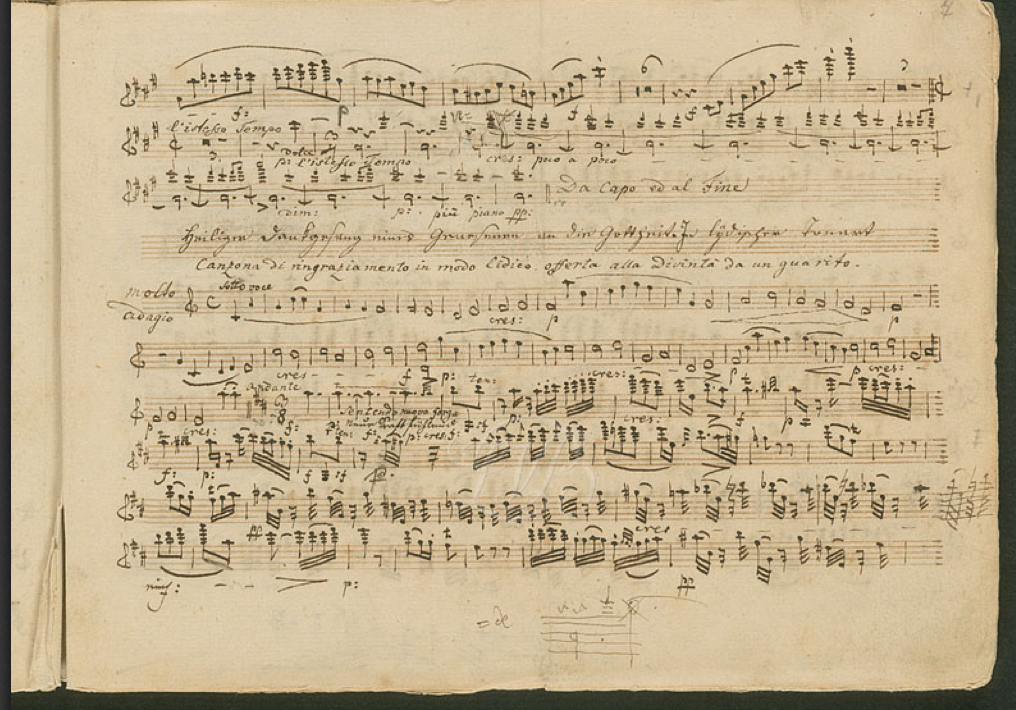 7
f: p
l'istesso Tempo
dolce
p: l'istesso Tempo cres: poco a poco
Da Capo ed al Fine
dim: p: più piano pp:
Heiliger Dankgesang eines Genesenen an die Gottheit. In lydischer Tonart
Canzona di ringraziamento in modo lidico offerta alla Divinità da un guarito.
sotto voce
molto
adagio cres: p
cres f p: ten: cres: p p cres:
andante
Sentendo nuova forza
neue Kraft fühlend
p cres: f: p: cres:
ten: f: p: cres: f:
f: p: f
pp cres
rinf: p: pp
= de